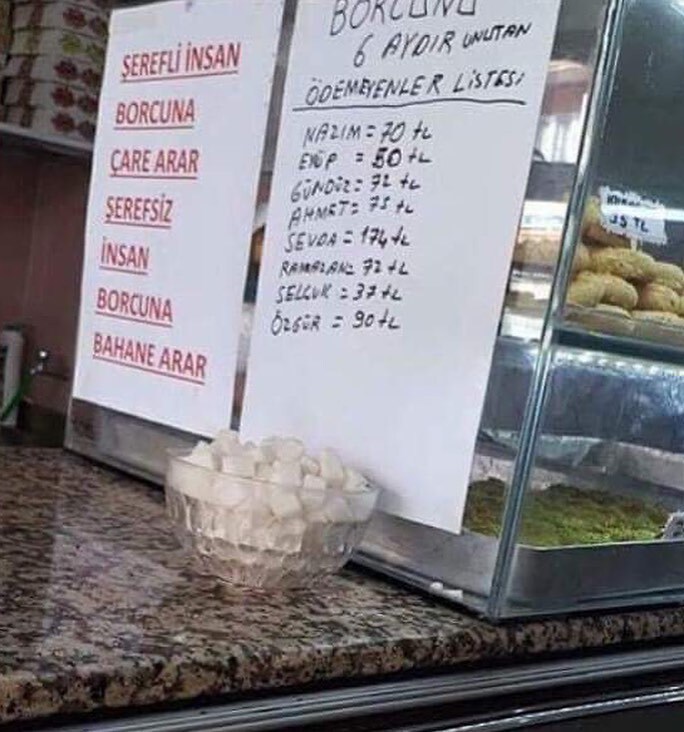 ŞEREFLİ İNSAN
BORCUNA
ÇARE ARAR
ŞEREFSİZ
İNSAN
BORCUNA
BAHANE ARAR
BORCUNU
6 AYDIR UNUTAN
ÖDEMEYENLER LİSTESİ
NAZIM = 70 tL
EYÜP = 50 tL
GÜNDÜZ = 72 tL
AHMET = 75 tL
SEVDA = 174 tL
RAMAZAN = 72 tL
SELÇUK = 37 tL
ÖZGÜR = 90 tL
35 TL